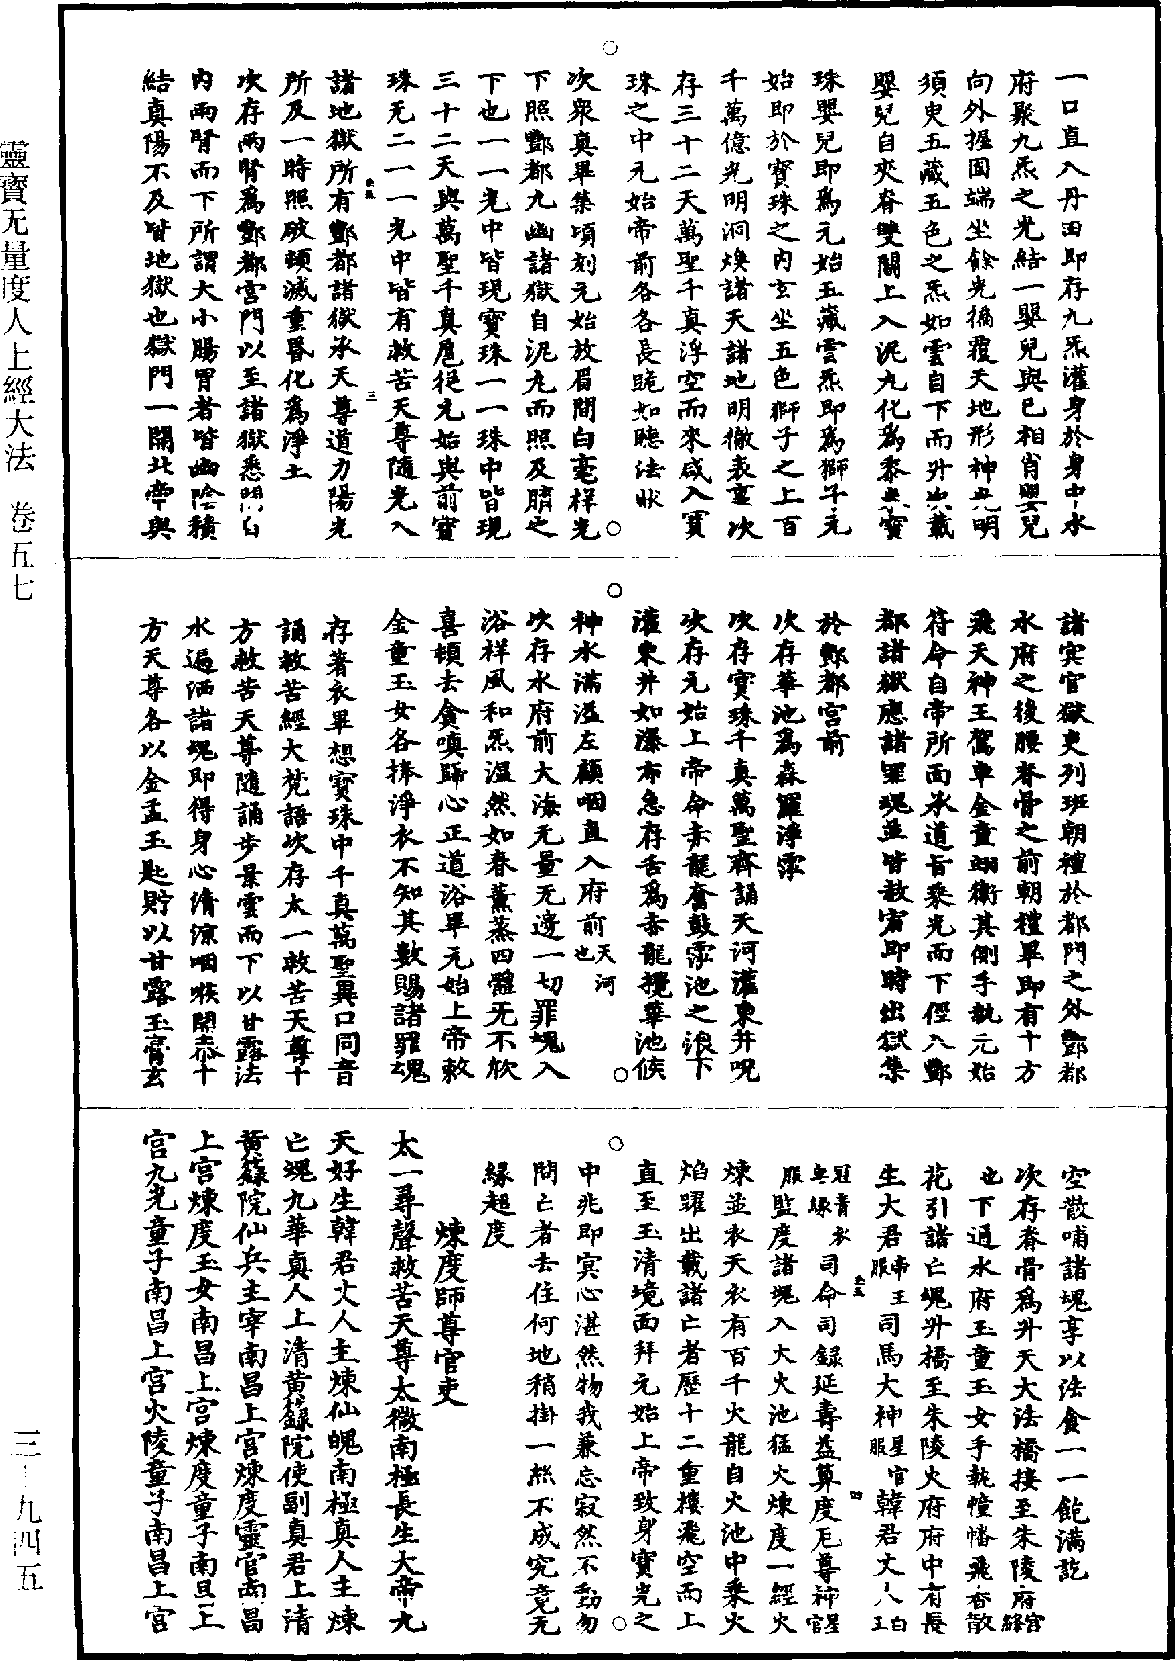 一口直入丹田即存九炁灌身於身中水
府聚九炁之光結一嬰兒與己相肖嬰兒
向外握固端坐餘光徧覆天地形神光明
須臾五藏五色之炁如雲自下而升捧戴
嬰兒自夾脊雙關上入泥丸化爲黍米寶
珠嬰兒即爲元始五藏雲炁即爲獅子元
始即於寶珠之內玄坐五色獅子之上百
千萬億光明洞煥諸天諸地明徹表裏次
存三十二天萬聖千真浮空而來咸入寶
珠之中元始帝前各各長跪如聽法狀
次衆真畢集頃刻元始放眉間白毫祥光
下照酆都九幽諸獄自泥丸而照及臍之
下也一一光中皆現寶珠一一珠中皆現
三十二天與萬聖千真扈從元始與前寶
珠无二一一光中皆有救苦天尊隨光入
諸地獄所有酆都諸獄承天尊道力陽光
所及一時照破頓滅重昏化爲淨土
次存兩腎爲酆都宮門以至諸獄悉開自
內兩腎而下所謂大小腸胃者皆幽陰積
結真陽不及皆地獄也獄門一開北帝與
諸冥官獄吏列班朝禮於都門之外酆都
水府之後腰脊骨之前朝禮畢即有十方
飛天神王駕車金童翊衛其側手執元始
符命自帝所面承道旨乘光而下徑入酆
都諸獄應諸罪魂並皆赦宥即時出獄集
於酆都宮前
次存華池爲森羅淨泓
次存寶珠千真萬聖齊誦天河灌東井呪
次存元始上帝命赤龍奮鼓泓池之浪下
灌東井如瀑布急存舌爲赤龍攪華池候
神水滿溢左顧咽直入府前天河也
次存水府前大海无量无邊一切罪魂入
浴祥風和炁溫然如春薰蒸四體无不欣
喜頓去貪嗔歸心正道浴畢元始上帝敕
金童玉女各捧淨衣不知其數賜諸罪魂
存著衣畢想寶珠中千真萬聖異口同音
誦救苦經大梵語次存太一救苦天尊十
方救苦天尊隨誦步景雲而下以甘露法
水遍洒諸魂即得身心清涼咽喉開泰十
方天尊各以金盂玉匙貯以甘露玉膏玄
空散哺諸魂享以法食一一飽滿訖
次存脊骨爲升天大法橋接至朱陵府絳宮
也下通水府玉童玉女手執幢幡飛香散
花引諸亡魂升橋至朱陵火府府中有長
生大君帝王服司馬大神星官服韓君丈人白玉
冠青衣無緣司命司錄延壽益算度厄尊神星官
服監度諸魂入大火池猛火煉度一經火
煉並衣天衣有百千火龍自火池中乘火
焰躍出載諸亡者歷十二重樓飛空而上
直至玉清境面拜元始上帝致身寶光之
中兆即冥心湛然物我兼忘寂然不動勿
問亡者去住何地稍掛一絲不成究竟无
緣超度
煉度師尊官吏
太一尋聲救苦天尊太微南極長生大帝九
天好生韓君丈人主煉仙魄南極真人主煉
亡魂九華真人上清黃籙院使副真君上清
黃籙院仙兵主宰南昌上宮煉度靈官南昌
上宮煉度玉女南昌上宮煉度童子南昌上
宮九光童子南昌上宮火陵童子南昌上宮
靈寶无量度人上經大法　卷五七
三－九四五